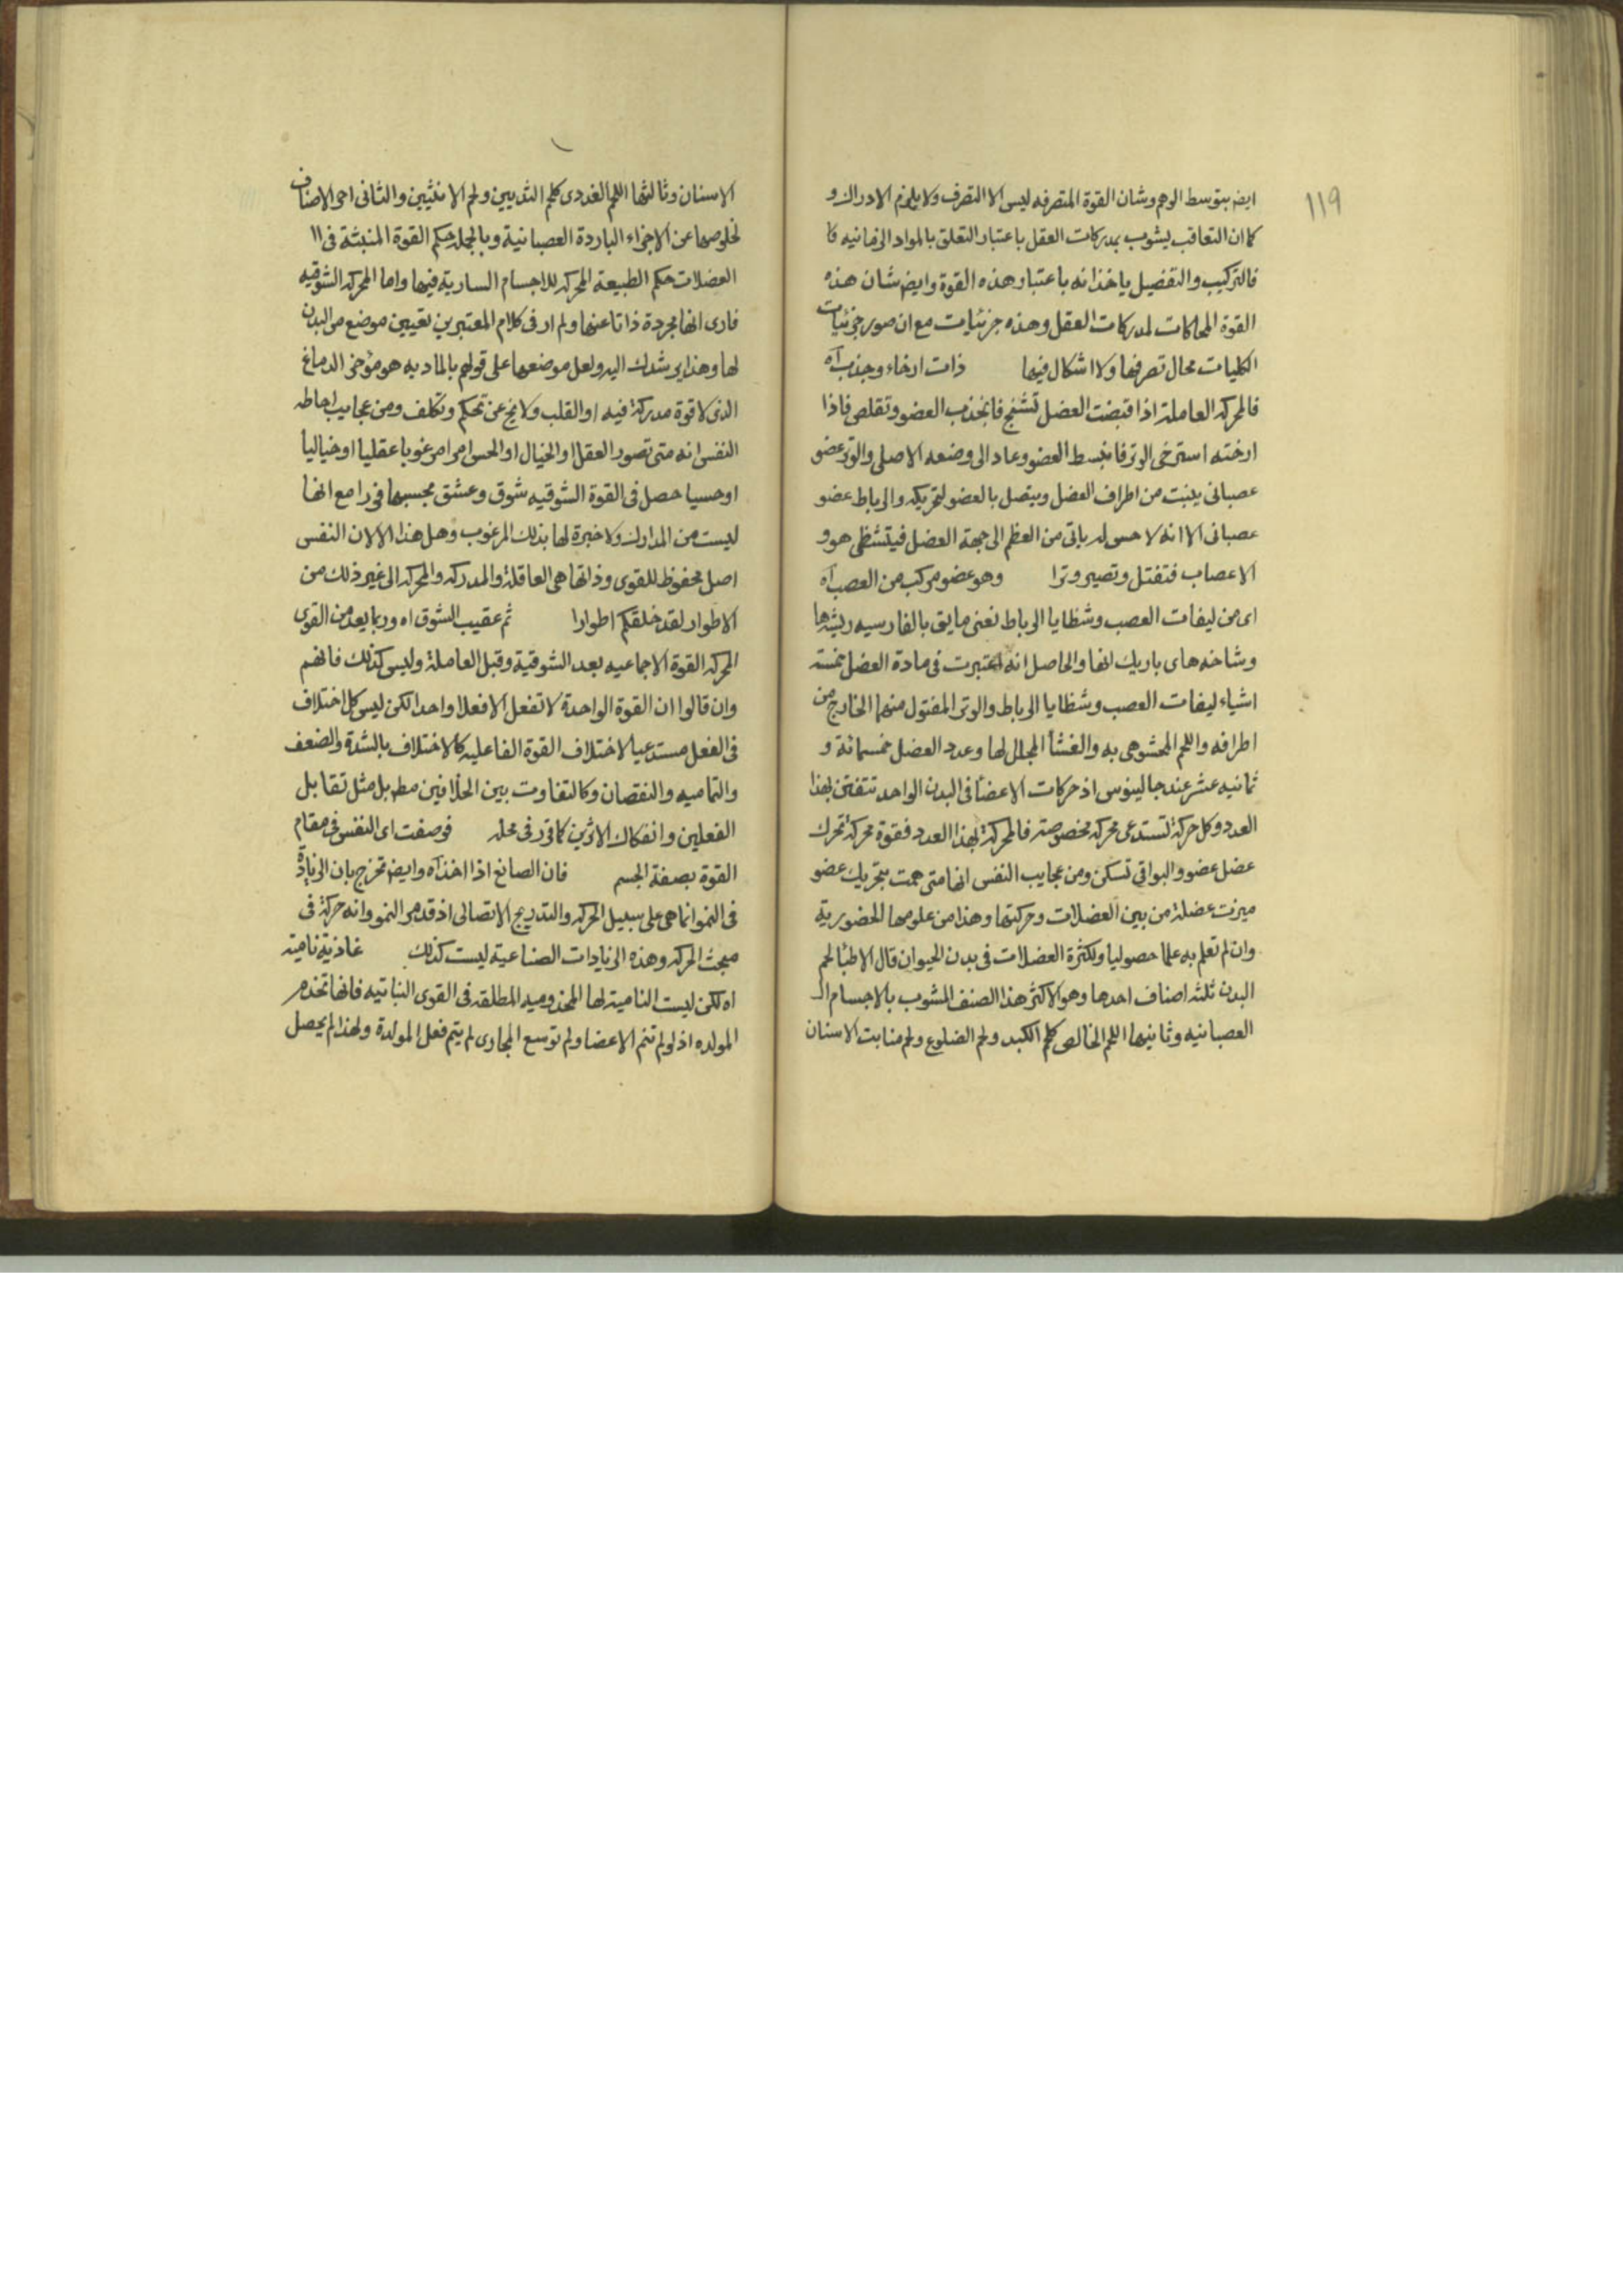 ١١٩
ايض بتوسط الوهم وشان القوة المتصرفه ليس الا التصرف ولا يلزم الادراك و
كما ان التعاقب يشوب بمدركات العقل باعتبار التعلق بالمواد الزمانيه كا
فالتركيب والتفصيل ياخذانه باعتبار هذه القوة وايض شان هذه
القوة المحاكات لمدركات العقل وهذه جزئيات مع ان صور جزئيات
الكليات محال تصرفها ولا اشكال فيها ذات ارخاء وجذب آه
فالمحركه العاملة اذا قبضت العضل تشنج فانجذب العضو وتقلص فاذا
ارخته استرخى الوتر فانبسط العضو وعاد الى وضعه الاصلى والوتر عضو
عصبانى ينبت من اطراف العضل ويتصل بالعضو لتحريكه والرباط عضو
عصبانى الا انه لا حس له ياتى من العظم الى جهة العضل فيتشظى هو و
الاعصاب فتفتل وتصير وترا وهو عضو مركب من العصب آه
اى من ليفات العصب وشظايا الرباط نعنى ما يق بالفارسيه ريشه ها
وشاخه هاى باريك انها والحاصل انه اعتبرت فى مادة العضل خمسة
اشياء ليفات العصب وشظايا الرباط والوتر المفتول منهما الخارج من
اطرافه واللحم المحشو هى به والغشأ المجلل لها وعدد العضل خمسمائة و
ثمانيه عشر عند جالينوس اذ حركات الاعضأ فى البدن الواحد تتفنن بهذا
العدد وكل حركة تستدعى محركه مخصوصة فالمحركة بهذا العدد فقوة محركة تحرك
عضل عضو والبواقى تسكن ومن عجايب النفس انها متى همت بتحريك عضو
ميزت عضلة من بين العضلات وحركتها وهذا من علومها الحضورية
وان لم تعلم به علما حصوليا ولكثرة العضلات فى بدن الحيوان قال الاطبأ لحم
البدن ثلثه اصناف احدها وهو الاكثر هذا الصنف المشوب بالاجسام الـ
العصبانيه وثانيها اللحم الخالص كلحم الكبد ولحم الضلوع ولحم منابت الاسنان
الاسنان وثالثها اللحم الغددى كلحم الثديين ولحم الانثيين والثانى احر الاصناف
لخلوصها عن الاجزاء الباردة العصبانية وبالجمله حكم القوة المنبثة فى ال
العضلات حكم الطبيعة المحركه للاجسام السارية فيها واما المحركه الشوقيه
فارى انها مجردة ذاتا عنها ولم ار فى كلام المعتبرين تعيين موضع من البدن
لها وهذا يرشدك اليه ولعل موضعها على قولهم بالماديه هو مؤخر الدماغ
الذى لا قوة مدركة فيه او القلب ولا يخ عن تحكم وتكلف ومن عجايب احاطه
النفس انه متى تصور العقل او الخيال او الحس امرا مرغوبا عقليا او خياليأ
او حسيا حصل فى القوة الشوقيه شوق وعشق بحسبها فورا مع انها
ليست من المدارك ولا خبرة لها بذلك المرغوب وهل هذا الا لان النفس
اصل محفوظ للقوى وذاتها هى العاقلة والمدركه والمحركه الى غير ذلك من
الاطوار لقد خلقكم اطوارا ثم عقيب الشوق اه وربما يعد من القوى
المحركه القوة الاجماعيه بعد الشوقية وقبل العاملة وليس كذلك فانهم
وان قالوا ان القوة الواحدة لا تفعل الا فعلا واحدا لكن ليس كل اختلاف
فى الفعل مستدعيا لاختلاف القوة الفاعليه كالاختلاف بالشدة والضعف
والتماميه والنقصان وكالتفاوت بين الخلافين مط بل مثل تقابل
الفعلين وانفكاك الاثرين كما قرر فى محله فوصفت اى النفس فى مقام
القوة بصفة الجسم فان الصانع اذا اخذ آه وايض تخرج بان الزيادة
فى النمو انما هى على سبيل الحركه والتدريج الاتصالى اذ قد مر النمو وانه حركة فى
مبحث الحركه وهذه الزيادات الصناعيه ليست كذلك غاذية نامية
اه لكن ليست النامية لها المخدوميه المطلقه فى القوى النباتيه فانها تخدم
المولده اذ لو لم تنم الاعضا ولم توسع المجارى لم يتم فعل المولدة ولهذا لم يحصل